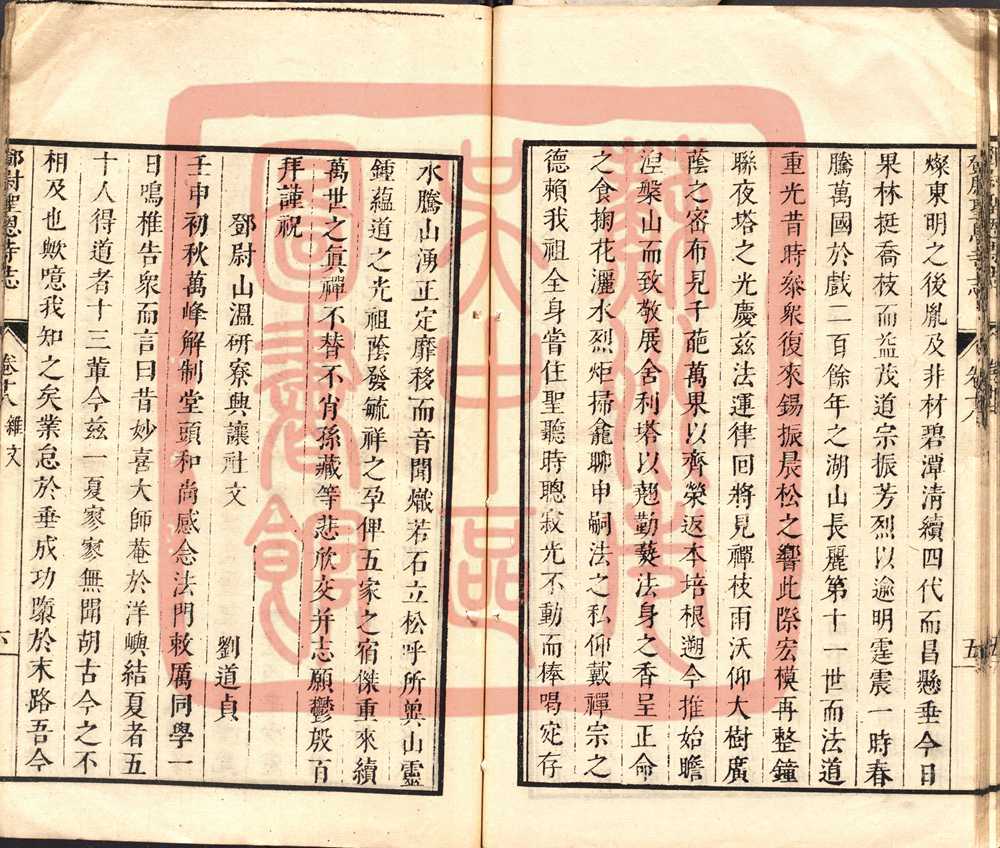 燦東明之後胤及非材碧潭清續四代而昌懸垂今日
果林挺喬枝而益茂道宗振芳烈以逾明霆震一時春
騰萬國於戲二百餘年之湖山長麗第十一世而法道
重光昔時叅衆復來錫振晨松之響此際宏模再整鐘
聯夜塔之光慶兹法運律回將見禪枝雨沃仰大樹廣
蔭之密布見千葩萬果以齊榮返本培根遡今推始瞻
涅槃山而致敬展舍利塔以翹勤爇法身之香呈正命
之食掬花灑水烈炬掃龕聊申嗣法之私仰戴禪宗之
德賴我祖全身嘗住聖聽時聰寂光不動而棒喝定存
五
水騰山湧正定靡移而音聞熾若石立松呼所兾山靈
鍾蘊道之光祖蔭發毓祥之孕俾五家之宿傑重來續
萬世之眞禪不替不肖孫藏等悲欣交并志願鬱殷百
拜謹祝
鄧尉山溫硏寮興讓社文
劉道貞
壬申初秋萬峰解制堂頭和尚感念法門敕厲同學一
日鳴椎告衆而言曰昔妙喜大師菴於洋嶼結夏者五
十人得道者十三輩今兹一夏寥寥無聞胡古今之不
相及也歟噫我知之矣業怠於垂成功隳於末路吾今
鄧尉聖恩寺志
卷十八
雜文
六